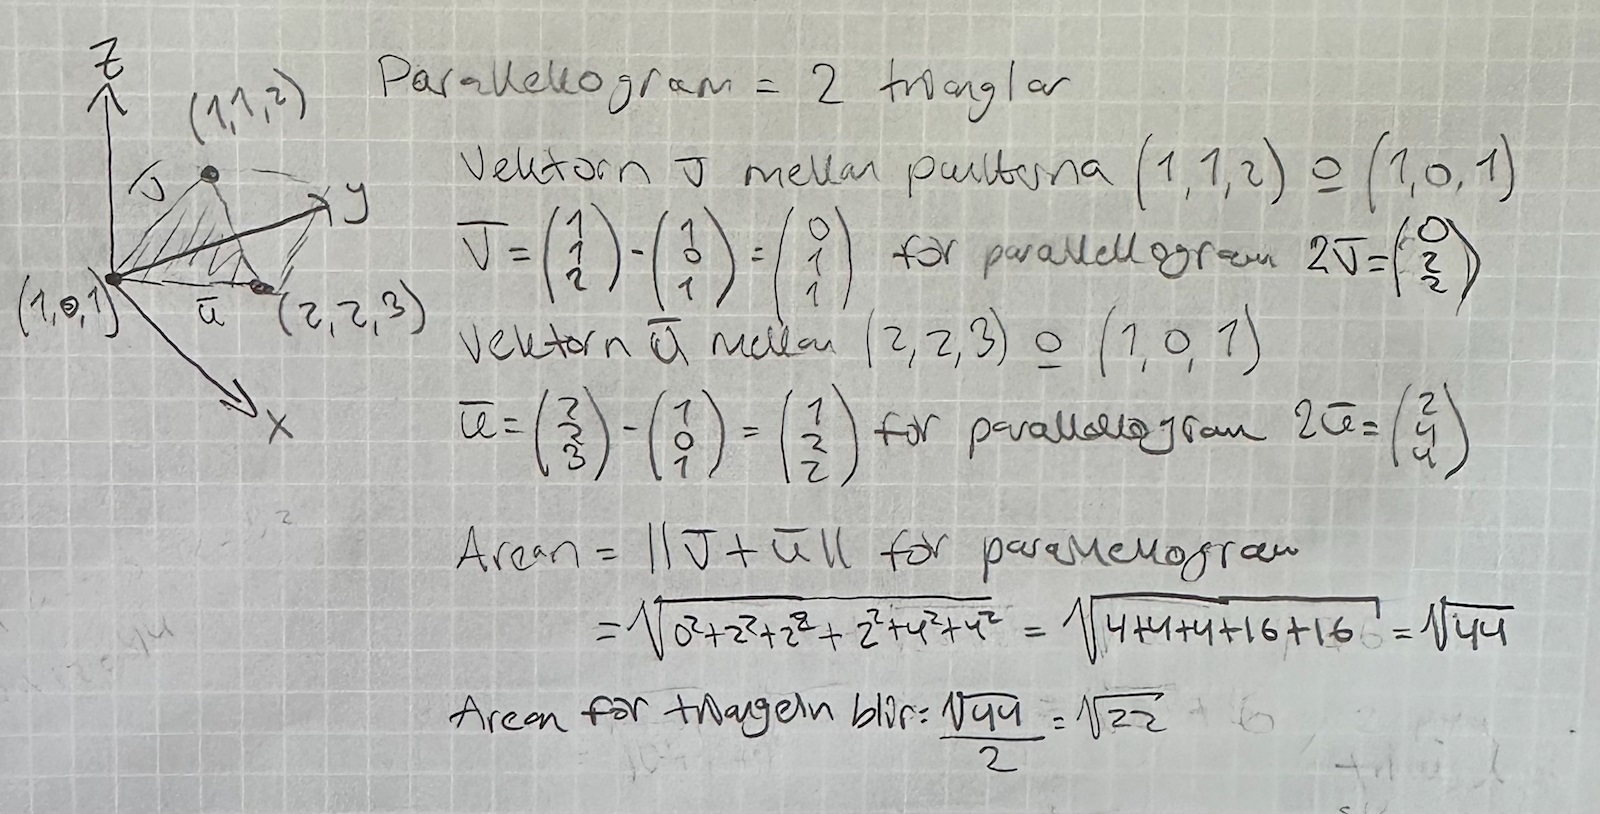 Z
(1,1,2)
Parallellogram = 2 trianglar
v̄
y
Vektorn v̄ mellan punkterna (1,1,2) o (1,0,1)
v̄ = (1 1 2) - (1 0 1) = (0 1 1) för parallellogram 2v̄ = (0 2 2)
(1,0,1)
ū
(2,2,3)
x
Vektorn ū mellan (2,2,3) o (1,0,1)
ū = (2 2 3) - (1 0 1) = (1 2 2) för parallellogram 2ū = (2 4 4)
Arean = ||v̄ + ū|| för parallellogram
= √(0²+2²+2²+2²+4²+4²) = √(4+4+4+16+16) = √44
Arean för triangeln blir: √44/2 = √22